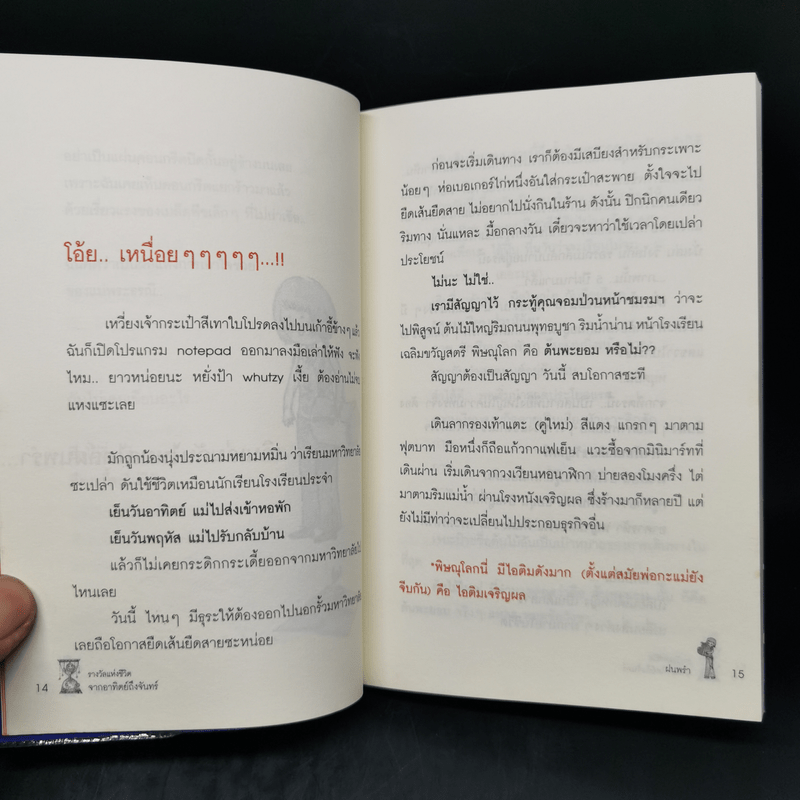 โอ้ย.. เหนื่อยๆๆๆๆๆ...!!
เหวี่ยงเจ้ากระเป๋าสีเทาใบโปรดลงไปบนเก้าอี้ข้างๆ แล้ว
ฉันก็เปิดโปรแกรม notepad ออกมาลงมือเล่าให้ฟัง จะฟัง
ไหม.. ยาวหน่อยนะ หยั่งป้า whutzy เงี้ย ต้องอ่านไม่จบ
แหงแซะเลย
มักถูกน้องนุ่งประณามหยามหมิ่น ว่าเรียนมหาวิทยาลัย
ซะเปล่า ดันใช้ชีวิตเหมือนนักเรียนโรงเรียนประจำ
เย็นวันอาทิตย์ แม่ไปส่งเข้าหอพัก
เย็นวันพฤหัส แม่ไปรับกลับบ้าน
แล้วก็ไม่เคยกระดิกกระเดี้ยออกจากมหาวิทยาลัยไป
ไหนเลย
วันนี้ ไหนๆ มีธุระให้ต้องออกไปนอกรั้วมหาวิทยาลัย
เลยถือโอกาสยืดเส้นยืดสายซะหน่อย
14
รางวัลแห่งชีวิต
จากอาทิตย์ถึงจันทร์
ก่อนจะเริ่มเดินทาง เราก็ต้องมีเสบียงสำหรับกระเพาะ
น้อยๆ ห่อเบอเกอร์ไก่หนึ่งอันใส่กระเป๋าสะพาย ตั้งใจจะไป
ยืดเส้นยืดสาย ไม่อยากไปนั่งกินในร้าน ดังนั้น ปิกนิกคนเดียว
ริมทาง นั่นแหละ มื้อกลางวัน เดี๋ยวจะหาว่าใช้เวลาโดยเปล่า
ประโยชน์
ไม่นะ ไม่ใช่..
เรามีสัญญาไว้ กระทู้คุณจอมป่วนหน้าชมรมฯ ว่าจะ
ไปพิสูจน์ ต้นไม้ใหญ่ริมถนนพุทธบูชา ริมน้ำน่าน หน้าโรงเรียน
เฉลิมขวัญสตรี พิษณุโลก คือ ต้นพะยอม หรือไม่??
สัญญาต้องเป็นสัญญา วันนี้ สบโอกาสซะที
เดินลากรองเท้าแตะ (คู่ใหม่) สีแดง แกรกๆ มาตาม
ฟุตบาท มือหนึ่งก็ถือแก้วกาแฟเย็น แวะซื้อจากมินิมาร์ทที่
เดินผ่าน เริ่มเดินจากวงเวียนหอนาฬิกา บ่ายสองโมงครึ่ง ไต่
มาตามริมแม่น้ำ ผ่านโรงหนังเจริญผล ซึ่งร้างมาก็หลายปี แต่
ยังไม่มีท่าว่าจะเปลี่ยนไปประกอบธุรกิจอื่น
*พิษณุโลกนี่ มีไอติมดังมาก (ตั้งแต่สมัยพ่อกะแม่ยัง
จีบกัน) คือ ไอติมเจริญผล
ฝนพรำ
15